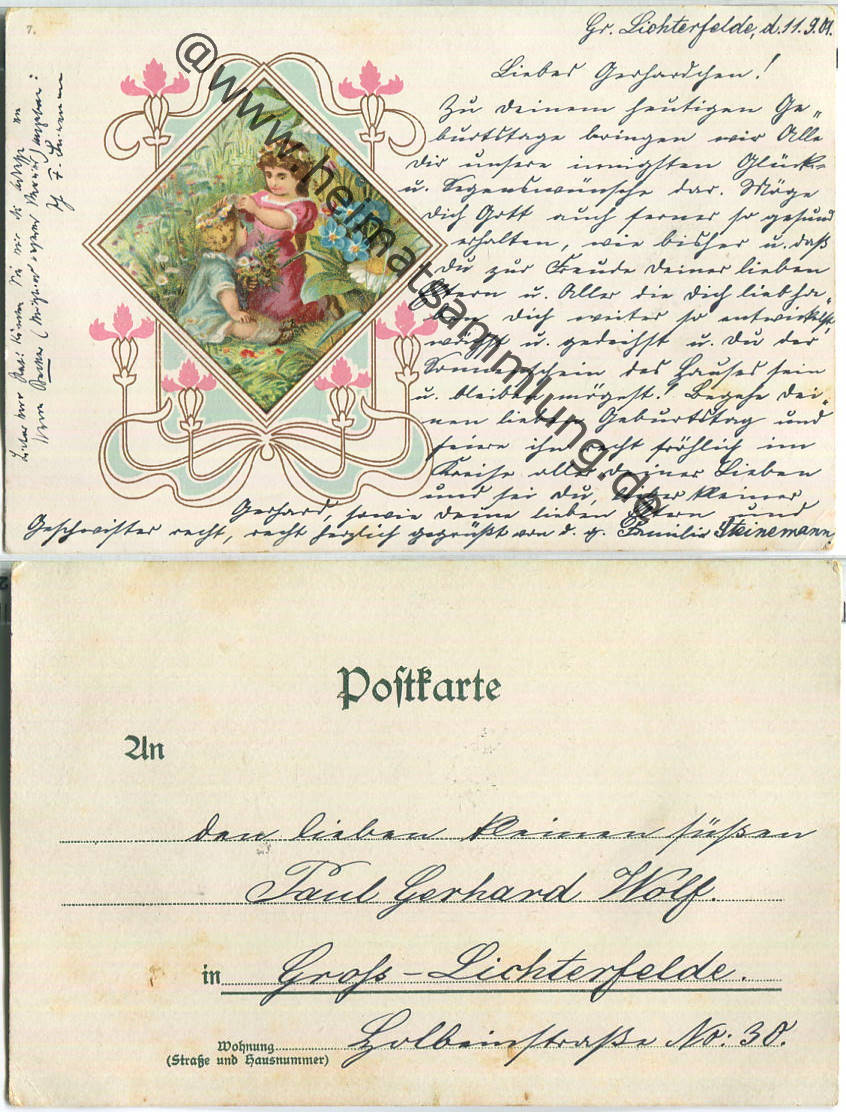 7.
Gr. Lichterfelde, d. 11.9.01.
Liebes Gerhardchen!
Zu deinem heutigen Ge-
burtstage bringen wir Alle
dir unsere innigsten Glück-
u. Segenswünsche dar. Möge
dich Gott auch ferner so gesund
erhalten, wie bisher u. daß
du zur Freude deiner lieben
Eltern u. Aller die dich liebha-
ben dich weiter so entwickelst,
wächst u. gedeihst u. du der
Sonnenschein des Hauses sein
u. bleiben mögest! Begehe dei-
nen lieben Geburtstag und
feiere ihn recht fröhlich im
Kreise aller deiner Lieben
und sei du, lieber kleiner
Gerhard, sowie deine lieben Eltern und
Geschwister recht, recht herzlich gegrüßt von d. g. Familie Steinemann.
@www.heimatsammlung.de
Postkarte
An
den lieben kleinen süßen
Paul Gerhard Wolf.
in Gross-Lichterfelde.
Wohnung
(Straße und Hausnummer)
Holbeinstraße No: 38.